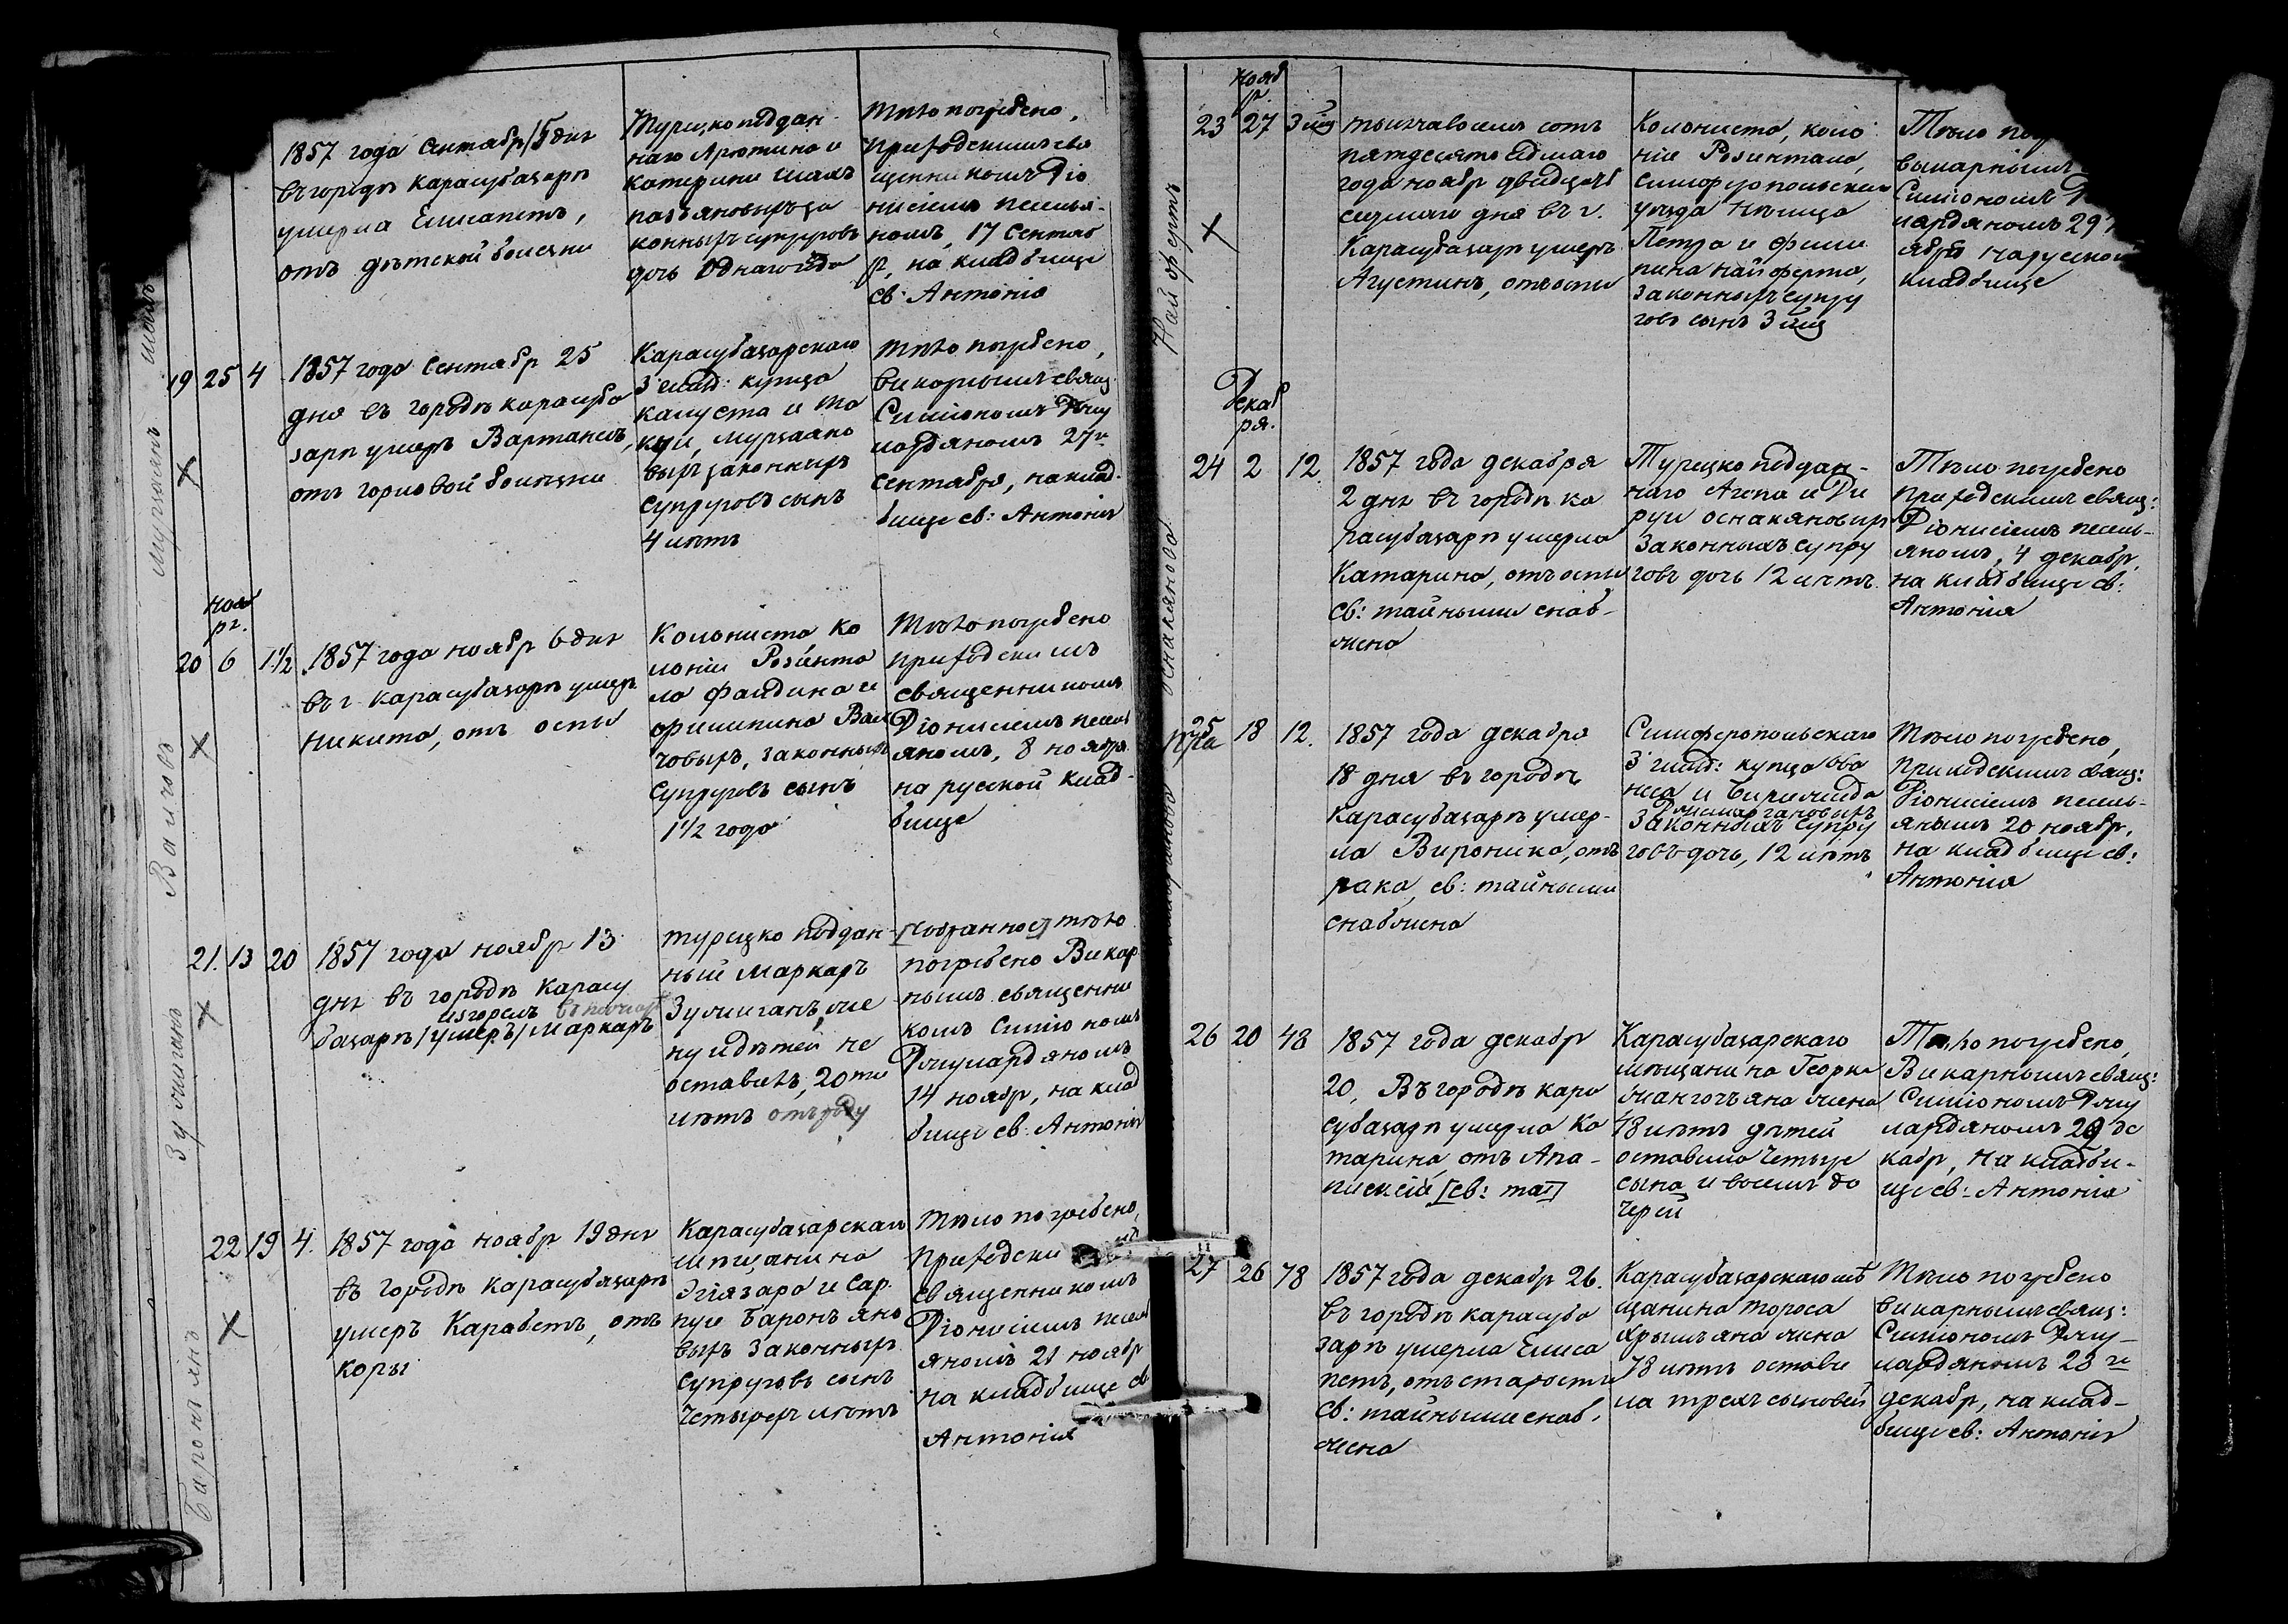 1857 года Сентябр 15 дня
въ городѣ Карасубазарѣ
умерла Елисапетъ,
отъ дѣтской болѣзни
Турецкоподдан-
наго Арютина и
Катерини Шахъ
пазъяновыхъ за
конныхъ супруговъ
дочь одного года
Тѣло погребено,
приходскимъ свя
щенникомъ Діо
нисіемъ песелья-
номъ, 17 Сентяб
р, на кладбище
св: Антонія
19 25 4
1857 года Сентябр 25
дня въ городѣ Карасуба
зарѣ умеръ Вартанъ,
отъ горловой болѣзни
Карасубазарскаго
3 гилд: купца
Калуста и
Мурзаяно
выхъ законныхъ
супруговъ сынъ
4 лѣтъ
Тѣло погребено,
викарнымъ свящ
Симіономъ
27
Сентября, на клад-
бище св: Антонія
Мурзаянъ
Ноя
бр.
20 6 1 1/2
1857 года ноябр 6 дня
въ г. Карасубазарѣ умеръ
Никита, отъ оспы
Колониста Ко
лоніи Розента
ла и
филипина
законныхъ
супруговъ сынъ
1 1/2 года
Тѣло погребено
приходскимъ
священникомъ
Діонисіемъ песель
яномъ, 8 ноября
на русской клад-
бище
Валговъ
21. 13 20
1857 года ноябр 13
дня въ городѣ Карасу
изгорелъ
базарѣ /умеръ/ Маркаръ
Турецко поддан-
ный Маркаръ
Зулмиганъ, же
ну и дѣтей не
оставилъ, 20ти
лѣтъ отъ роду
тѣло
погребено Викар
нымъ священни
комъ Симіономъ
14 ноябр, на клад
бище св: Антонія
Зулмиганъ
22 19 4.
1857 года ноябр 19 дня
въ городѣ Карасубазарѣ
умеръ Карабетъ, отъ
коры
Карасубазарскаго
мѣщанина
Эгіазара и Сар
пуи Баронъ яно
выхъ законныхъ
супруговъ сынъ
четырехъ лѣтъ
Тѣло погребено,
приходски
священникомъ
Діонисіемъ песел
яномъ 21 ноябр
на кладбище св
Антонія
Баронъянъ
Нояб
р.
23 27 3
пятдесятъ седмаго
года ноябр двадцать
седмаго дня въ г.
Карасубазарѣ умеръ
Агустинъ, отъ оспы
Колониста, коло
ніи Розинтала,
Симферопольскаго
уѣзда Нѣмца
Петра и Фили
пина Найферта,
законныхъ супру
говъ сынъ 3
Тѣло
викарнымъ
Симіономъ
мардяномъ 29
ября на русском
кладбище
Найфертъ
Декаб
ря.
24 2 12
1857 года декабря
2 дня въ городѣ Ка
расубазарѣ умерла
Катарина, отъ оспы
св: тайными снаб-
жена
Турецко поддан-
наго Агопа и
оснакяновыхъ
законныхъ супру
говъ дочь 12 лѣтъ.
Тѣло погребено
приходскимъ свящ:
Діонисіемъ песель-
яномъ, 4 декабр,
на кладбище св:
Антонія
Оснакянова
25 18 12.
1857 года декабря
18 дня въ городѣ
Карасубазарѣ умер-
ла Вироника, отъ
рака, св: тайными
снабжена
Симферопольскаго
3 гилд: купца Ова
неса и
законныхъ супру
говъ дочь, 12 лѣтъ
Тѣло погребено,
приходскимъ свящ:
Діонисіемъ песель-
яномъ 20 ноябр,
на кладбище св:
Антонія
26 20 48
1857 года декабр
20, Въ городѣ Кара
субазарѣ умерла Ка
тарина, отъ Апа-
плексіи [св: таі]
Карасубазарскаго
мѣщанина Георка
жена
48 лѣтъ дѣтей
оставила четыре
сына и восемь до
черей
Тѣло погребено,
Викарнымъ свящ:
Симіономъ Джу
мардяномъ 20 де
кабр, на кладби-
ще св: Антонія
27 26 78
1857 года декабр 26.
въ городѣ Карасуба
зарѣ умерла Елиса
петъ, отъ старости
св: тайными снаб.
жена
Карасубазарскаго мѣ
щанина Тороса
Хрымъяна жена
78 лѣтъ остави
ла трехъ сыновей
Тѣло погребено
викарнымъ свящ:
Симіономъ Джу-
мардяномъ 28 го
декабр, на клад-
бище св: Антонія